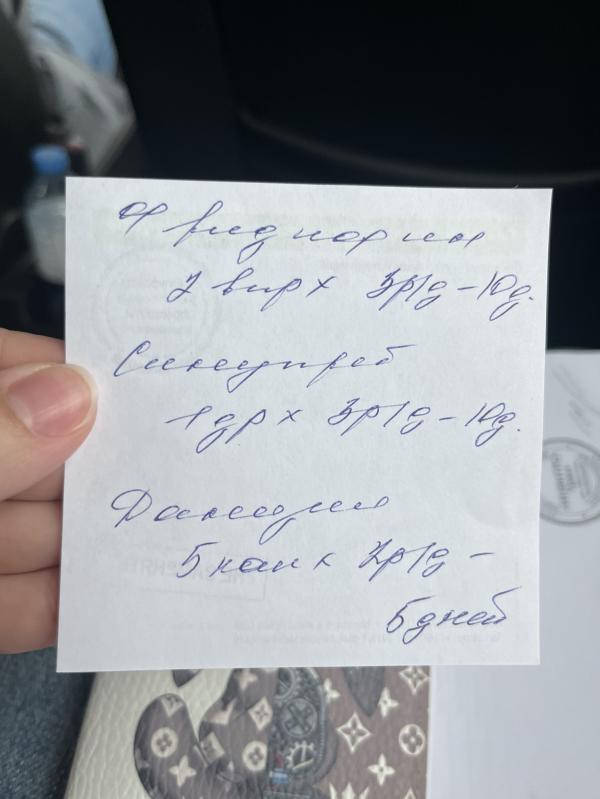 2 впр х 3р/д – 10д.
Синупрет
1 др х 3р/д – 10д.
Данцил
5 кап х 2р/д –
5 дней